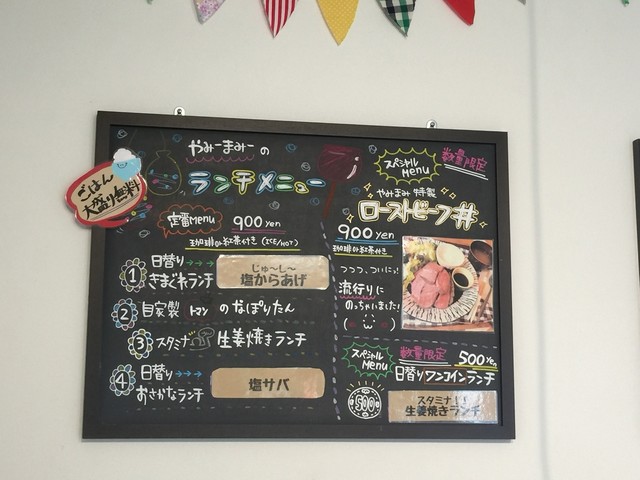 ごはん
大盛り無料
やみーまみーの
ランチメニュー
定番Menu 900yen
珈琲or紅茶付き (ICE/HOT)
① 日替り→→→
きまぐれランチ
じゅ〜し〜
塩からあげ
② 自家製 トマン のなぽりたん
③ スタミナ 生姜焼きランチ
④ 日替り→→→
おさかなランチ
塩サバ
スペシャル
Menu
数量限定
やみまみ特製
ローストビーフ丼
900yen
珈琲or紅茶付き
つつつ、ついにっ!
流行りに
のっちゃいました!
スペシャル
Menu
数量限定 500yen
日替りワンコインランチ
500
スタミナ!!
生姜焼きランチ